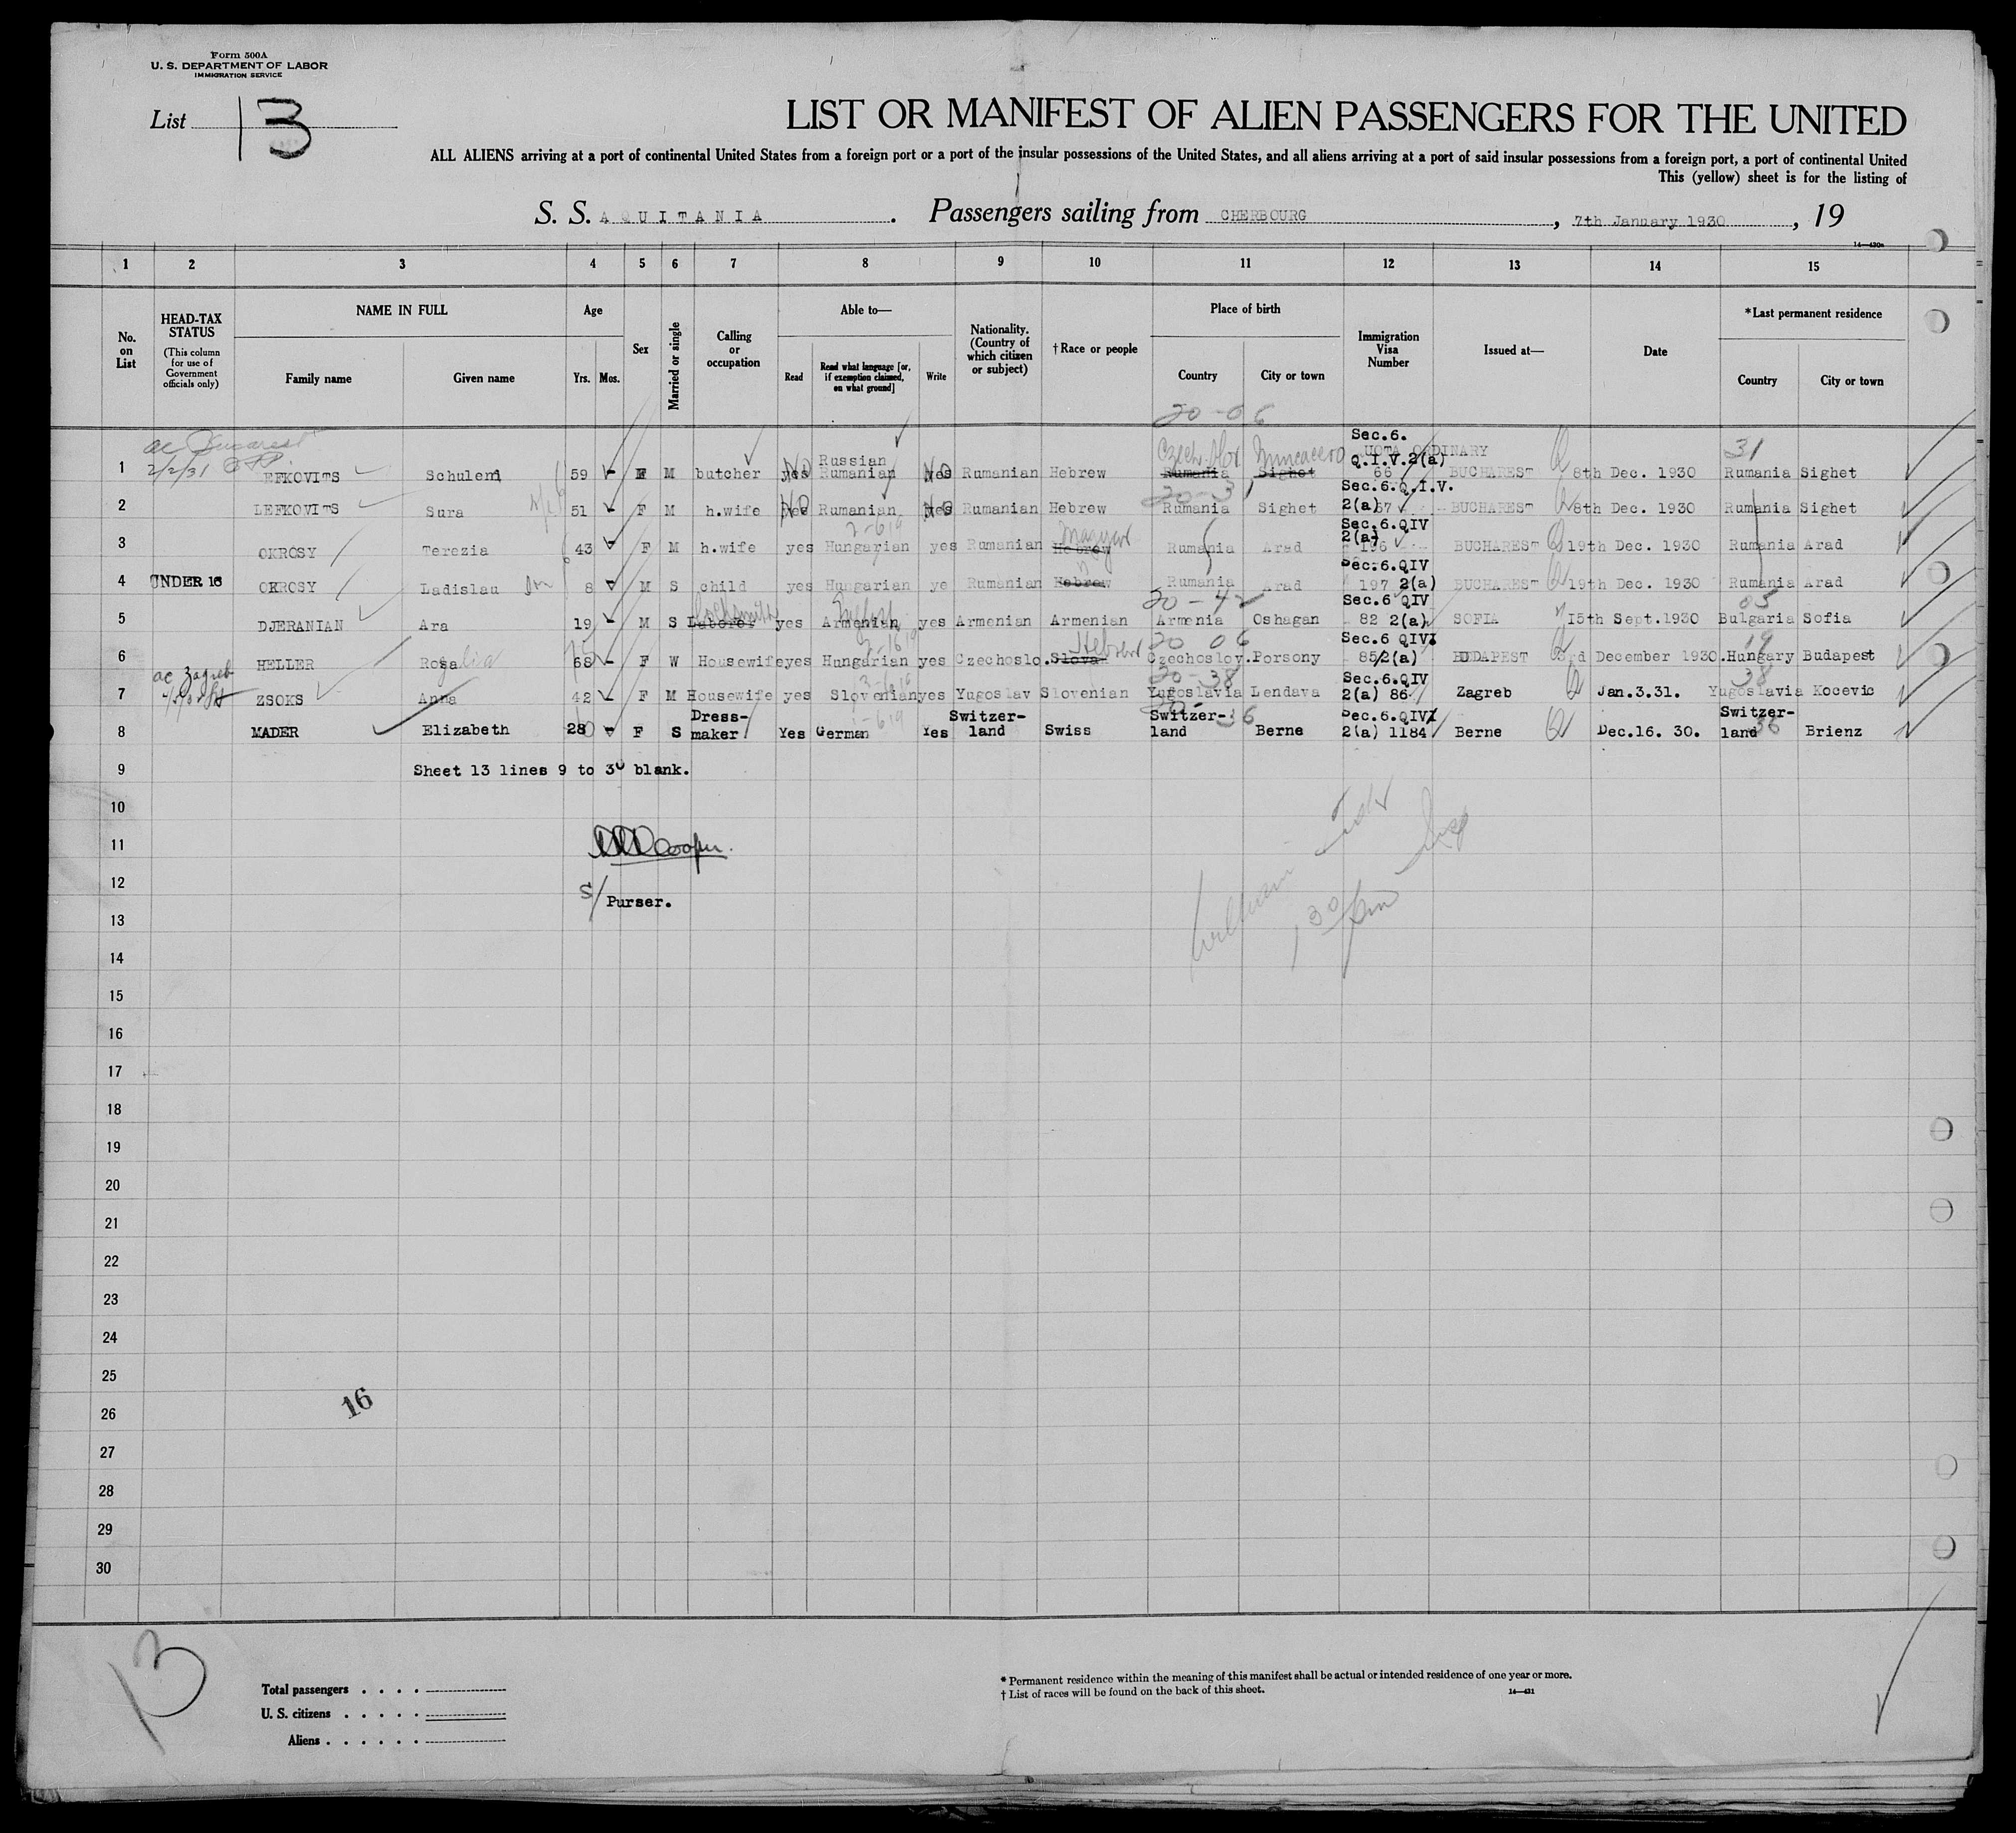 Form 500A
U. S. DEPARTMENT OF LABOR
IMMIGRATION SERVICE
List 13
LIST OR MANIFEST OF ALIEN PASSENGERS FOR THE UNITED
ALL ALIENS arriving at a port of continental United States from a foreign port or a port of the insular possessions of the United States, and all aliens arriving at a port of said insular possessions from a foreign port, a port of continental United
This (yellow) sheet is for the listing of
S. S. AQUITANIA . Passengers sailing from CHERBOURG , 7th January 1930 , 19
14—430a
1 2 3 4 5 6 7 8 9 10 11 12 13 14 15
No. on List
HEAD-TAX STATUS (This column for use of Government officials only)
NAME IN FULL Family name Given name
Age Yrs. Mos.
Sex
Married or single
Calling or occupation
Able to— Read Read what language [or, if exemption claimed, on what ground] Write
Nationality. (Country of which citizen or subject)
†Race or people
Place of birth Country City or town
Immigration Visa Number
Issued at—
Date
*Last permanent residence Country City or town
20-06
ac Bucarest Russian Czech. Slov. Sec.6. QUOTA ORDINARY 31
1 2/2/31 LEFKOVITS Schulem 59 - M M butcher yes No Rumanian yes No Rumanian Hebrew Rumania Sighet Q.I.V.2(a) 66 BUCHAREST 8th Dec. 1930 Rumania Sighet
20-31 Sec.6.Q.I.V.
2 LEFKOVITS Sura 51 - F M h.wife yes No Rumanian yes No Rumanian Hebrew Rumania Sighet 2(a)67 BUCHAREST 8th Dec. 1930 Rumania Sighet
Magyar Sec.6.QIV
3 OKROSY Terezia 43 - F M h.wife yes Hungarian yes Rumanian Hebrew Rumania Arad 2(a) 196 BUCHAREST 19th Dec. 1930 Rumania Arad
Sec.6.QIV
4 UNDER 16 OKROSY Ladislau son 8 - M S child yes Hungarian ye Rumanian Hebrew " Rumania Arad 197 2(a) BUCHAREST 19th Dec. 1930 Rumania Arad
Locksmith 20-4 Sec.6 QIV 05
5 DJERANIAN Ara 19 - M S Laborer yes Armenian yes Armenian Armenian Armenia Oshagan 82 2(a) SOFIA 15th Sept.1930 Bulgaria Sofia
Hebrew 20 06 Sec.6 QIV 19
6 HELLER Rosalia 68 - F W Housewife yes Hungarian yes Czechoslo. Slovak Czechoslov. Porsony 85/2(a) BUDAPEST 3rd December 1930. Hungary Budapest
ac Zagreb 20-38 Sec.6.QIV 38
7 ZSOKS Anna 42 - F M Housewife yes Slovenian yes Yugoslav Slovenian Yugoslavia Lendava 2(a) 86 Zagreb Jan.3.31. Yugoslavia Kocevic
Dress- Switzer- Switzer- 36 Sec.6.QIV Switzer-
8 MADER Elizabeth 28 - F S maker Yes German Yes land Swiss land Berne 2(a) 1184 Berne Dec.16. 30. land 36 Brienz
9 Sheet 13 lines 9 to 30 blank.
10
11 Cooper.
12
S/ Purser.
13
14
15
16
17
18
19
20
21
22
23
24
25
16
26
27
28
29
30
13
Total passengers . . . .
U. S. citizens . . . . .
Aliens . . . . . .
* Permanent residence within the meaning of this manifest shall be actual or intended residence of one year or more.
† List of races will be found on the back of this sheet. 14—431